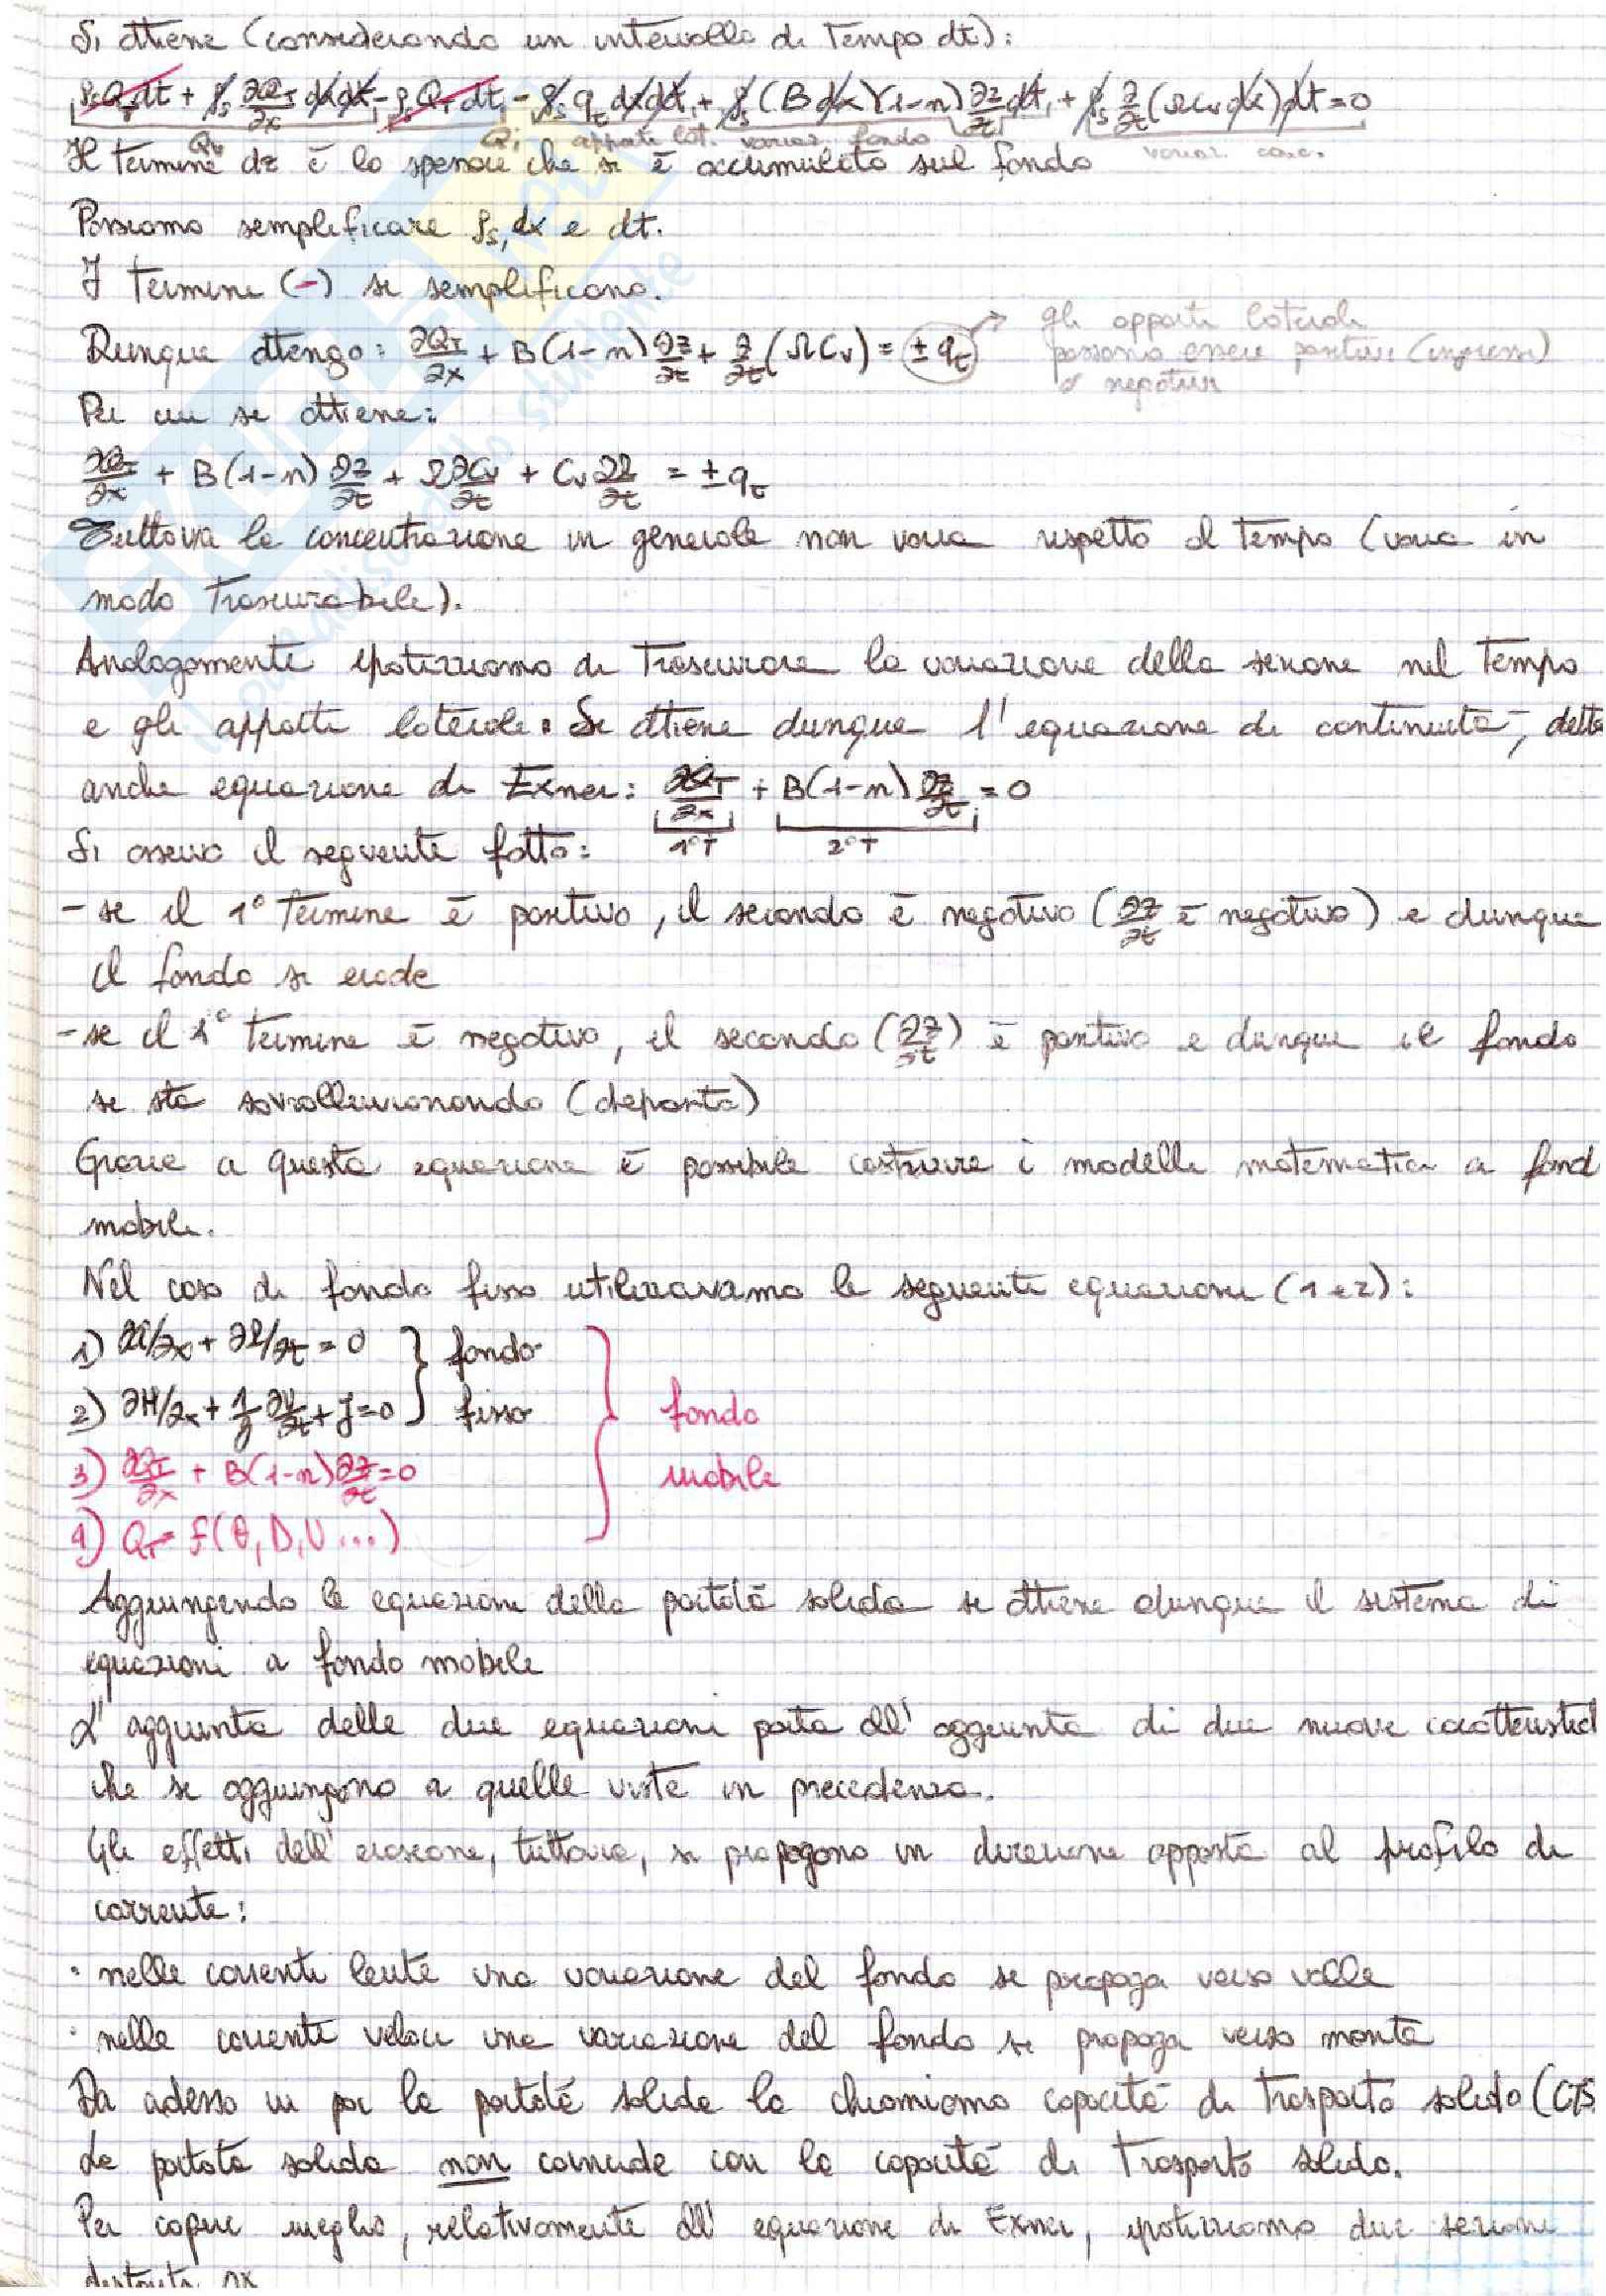 Si ottiene (considerando un intervallo di tempo dt):
ρs QT dt + ρs ∂QT/∂x dx dt - ρs QT dt - ρs qt dx dt + ρs (B dx)(1-n) ∂z/∂t dt + ρs ∂/∂t (Ω Cv dx) dt = 0
Qu Qi apporti lat. variaz. fondo variaz. conc.
Il termine dz è lo spessore che si è accumulato sul fondo
Possiamo semplificare ρs, dx e dt.
I termini (-) si semplificano.
Dunque ottengo: ∂QT/∂x + B(1-n) ∂z/∂t + ∂/∂t (Ω Cv) = ± qt
gli apporti laterali
possono essere positivi (ingressi)
o negativi
Per cui si ottiene:
∂QT/∂x + B(1-n) ∂z/∂t + Ω ∂Cv/∂t + Cv ∂Ω/∂t = ± qt
Tuttavia la concentrazione in generale non varia rispetto al tempo (varia in
modo trascurabile).
Analogamente ipotizziamo di trascurare la variazione della sezione nel tempo
e gli apporti laterali. Si ottiene dunque l'equazione di continuità, detta
anche equazione di Exner: ∂QT/∂x + B(1-n) ∂z/∂t = 0
1°T 2°T
Si osserva il seguente fatto:
- se il 1° termine è positivo, il secondo è negativo (∂z/∂t è negativo) e dunque
il fondo si erode
- se il 1° termine è negativo, il secondo (∂z/∂t) è positivo e dunque il fondo
si sta sovralluvionando (deposita)
Grazie a questa equazione è possibile costruire i modelli matematici a fond
mobile.
Nel caso di fondo fisso utilizzavamo le seguenti equazioni (1 e 2):
1) ∂Q/∂x + ∂Ω/∂t = 0 } fondo
2) ∂H/∂x + 1/g ∂U/∂t + J = 0 } fisso
fondo
mobile
3) ∂QT/∂x + B(1-n) ∂z/∂t = 0
4) QT = f(θ, D, U ...)
Aggiungendo le equazioni della portata solida si ottiene dunque il sistema di
equazioni a fondo mobile
L'aggiunta delle due equazioni porta all'aggiunta di due nuove caratteristich
che si aggiungono a quelle viste in precedenza.
Gli effetti dell'erosione, tuttavia, si propagono in direzione opposta al profilo di
corrente:
· nelle correnti lente una variazione del fondo si propaga verso valle
· nelle correnti veloci una variazione del fondo si propaga verso monte
Da adesso in poi la portata solida la chiamiamo capacità di trasporto solido (CTS
La portata solida non coincide con la capacità di trasporto solido.
Per capire meglio, relativamente all'equazione di Exner, ipotizziamo due sezioni
distanti ∂x